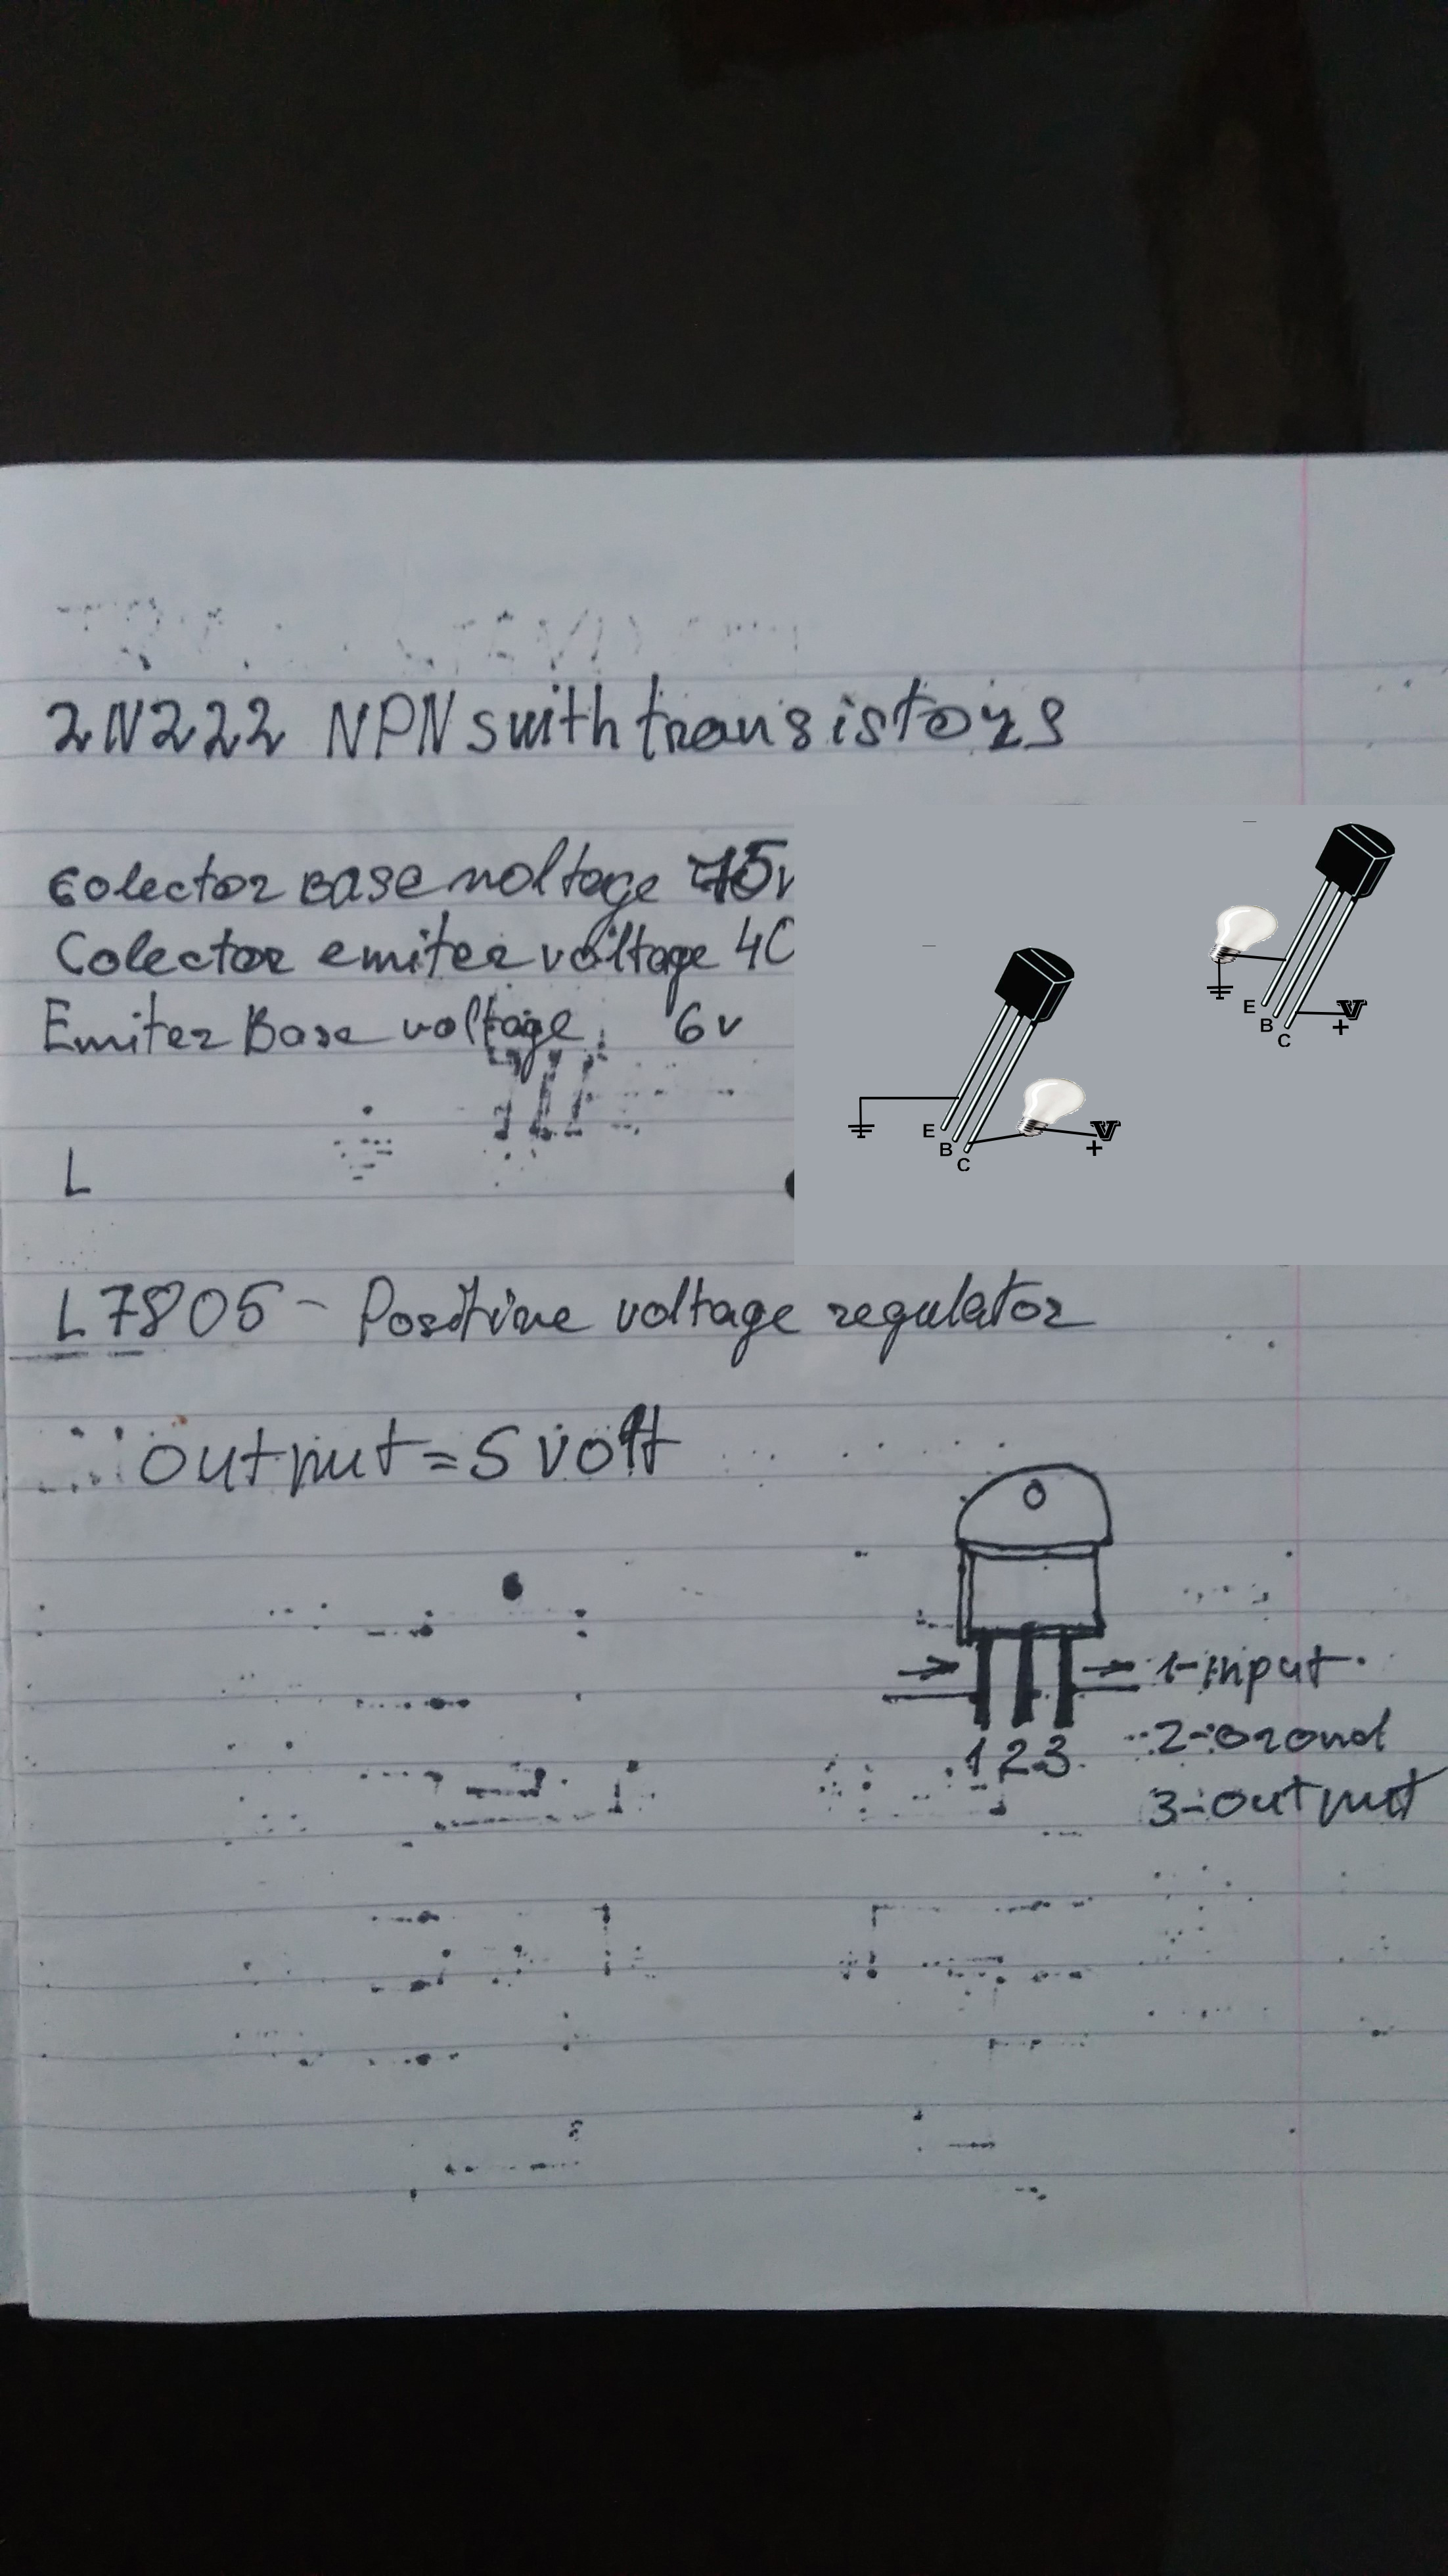 2N222 NPN swith transistors
Colector BASE voltage 75v
Colector emiter voltage 40
Emiter Base voltage 6v
E
B
C
V
+
E
B
C
V
+
L
L7805 - Positive voltage regulator
output = 5 volt
1-input
2-Grond
3-output
1 2 3